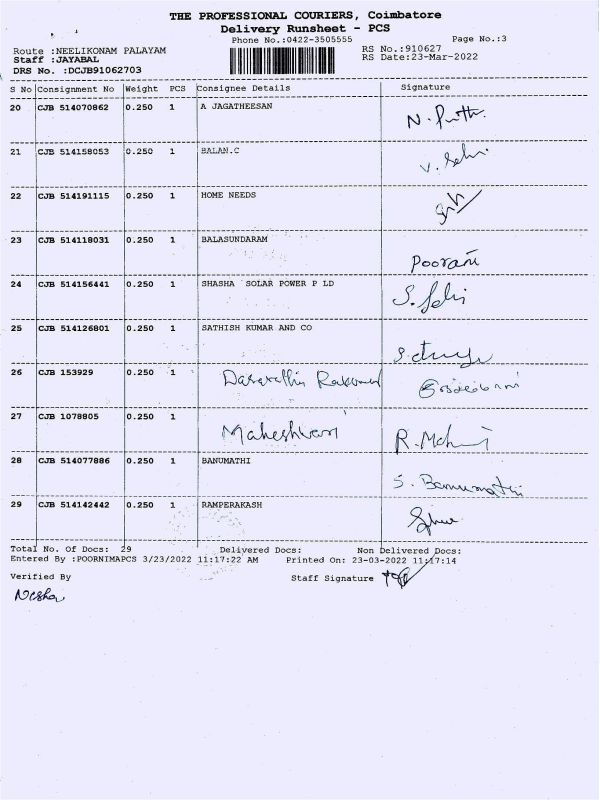 THE PROFESSIONAL COURIERS, Coimbatore
Delivery Runsheet - PCS
Phone No.:0422-3505555 Page No.:3
Route :NEELIKONAM PALAYAM RS No.:910627
Staff :JAYABAL RS Date:23-Mar-2022
DRS No. :DCJB91062703
S No Consignment No Weight PCS Consignee Details Signature
20 CJB 514070862 0.250 1 A JAGATHEESAN
21 CJB 514158053 0.250 1 BALAN.C
22 CJB 514191115 0.250 1 HOME NEEDS
23 CJB 514118031 0.250 1 BALASUNDARAM
Poorani
24 CJB 514156441 0.250 1 SHASHA SOLAR POWER P LD
25 CJB 514126801 0.250 1 SATHISH KUMAR AND CO
26 CJB 153929 0.250 1
27 CJB 1078805 0.250 1 Maheshwari
28 CJB 514077886 0.250 1 BANUMATHI
S. Banumathi
29 CJB 514142442 0.250 1 RAMPERAKASH
Total No. Of Docs: 29 Delivered Docs: Non Delivered Docs:
Entered By :POORNIMAPCS 3/23/2022 11:17:22 AM Printed On: 23-03-2022 11:17:14
Verified By Staff Signature
Nisha